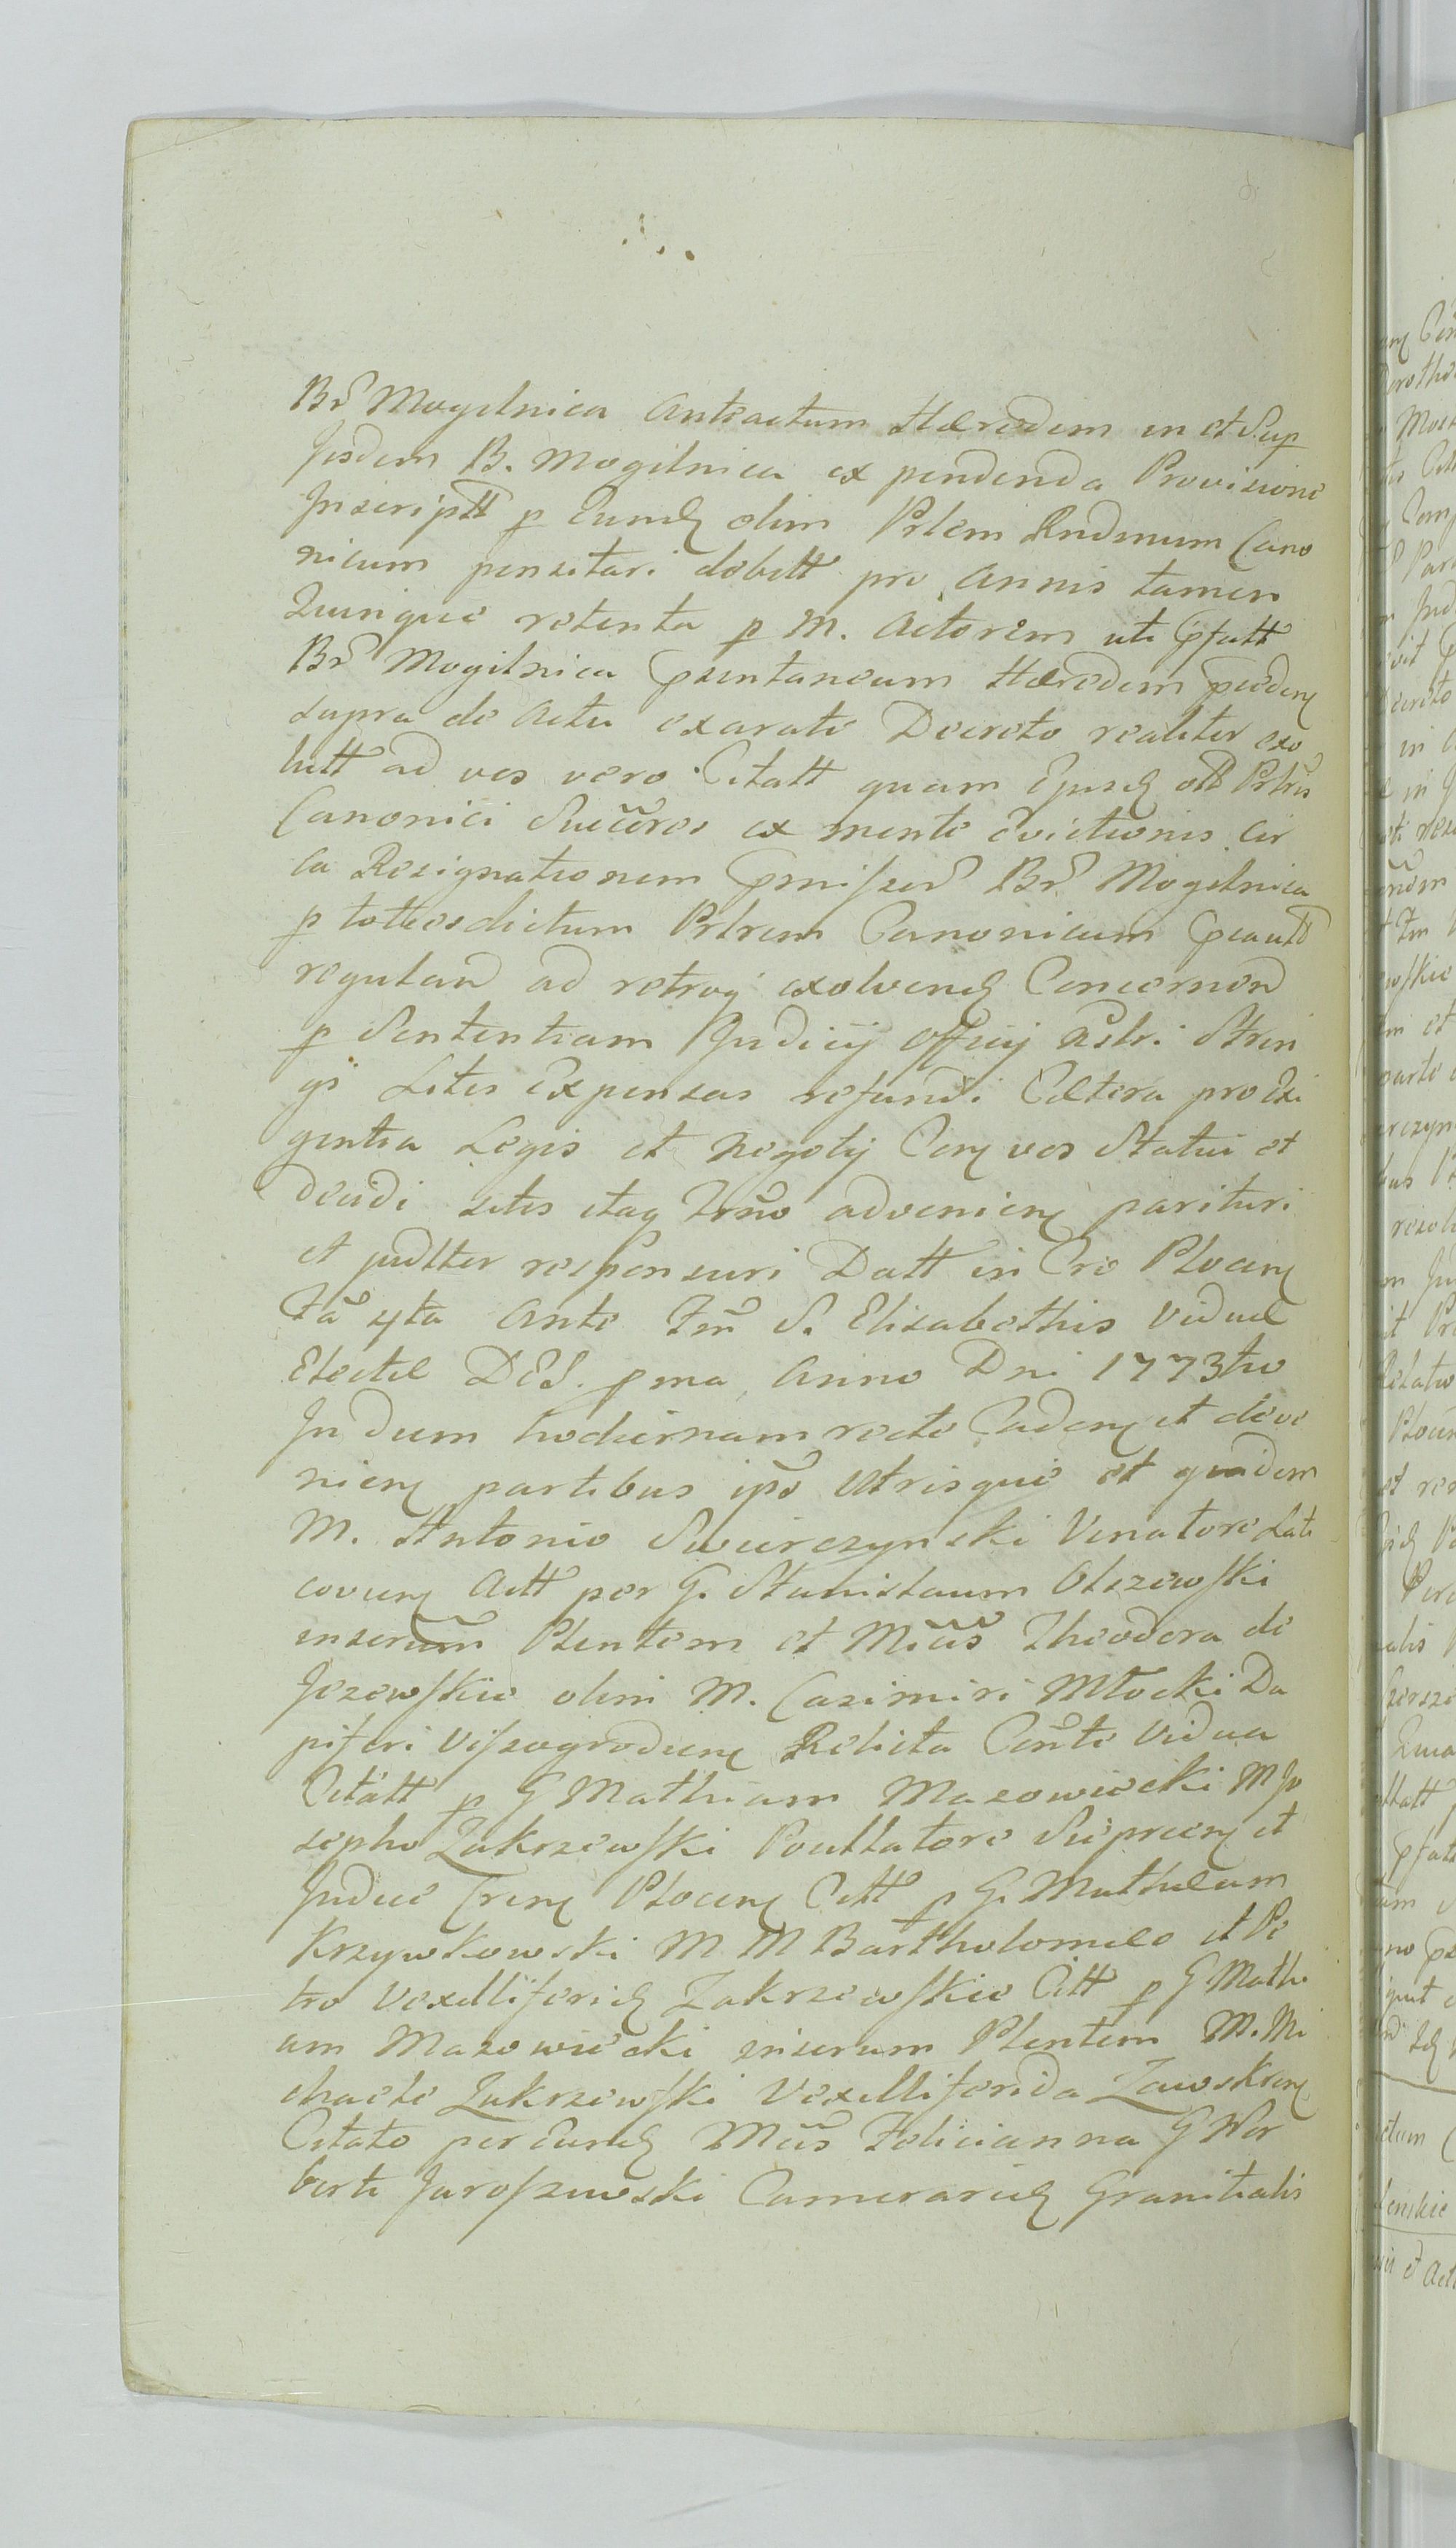 Brũ Mogilnica Anteactum Hæredem in et Sup
Jisdem B. Mogilnica ex pendenda Provisione
Inscriptt p Eundẽ olim Prlem Rndmum Cano
nicum pensitari debitt pro Annis tamen
Quinque retenta p M. Actorem uti Pfatt
Brũ Mogilnica Psentaneum Hæredem
supra de Actu exarato Decreto realiter exo
lutt ad vos vero Citatt quam Ejusdẽ
Canonici Succres ex mente evictionis cir
ca Resignationem Pmisser Br Mogilnica
p totiesdictum Prlrem Canonicum
reguland ad retroq exolvendẽ Concernend
p Sententiam Judicij Officij Nstri Strin
gi Litis Expensas refundi Cætera pro Exi
gentia Legis et Negotij Corẽ vos Statui et
decidi sitis itaq Trno advenienẽ parituri
et judlter responsuri Datt in Cro Plocenẽ
Fa 4ta Ante Fm S. Elisabethis Viduæ
Electæ DEI. pma Anno Dni 1773tio
In diem hodiernam recte Cadenẽ et deve
nienẽ partibus ipõ Utrisque et quidem
M. Antonio Swierczynski Venatore Lati
covienẽ Actt per G. Stanislaum Olszewski
inserum Plentem et Micũs Theodora de
Jezewskie olim M. Casimiri Młocki Da
piferi Vissogrodienẽ Relicta Cerñte Vidua
Citatt p G Mathiam Mazowiecki M Jo
sepho Zakrzewski Poultatore Sieprcenẽ et
Judice Crenẽ Plocenẽ Citt p G. Mathæum
Krzywkowski M M Bartholomæo et Pe
tro Vexilliferidẽ Zakrzewskie Citt p G Mathi
am Mazowiecki inserum Plentem M. Mi
chaele Zakrzewski Vexilliferida Zawskrenẽ
Citato per Eundẽ Micũs Felicianna G Nor
berti Jarosszewski Cameraridẽ Granitialis